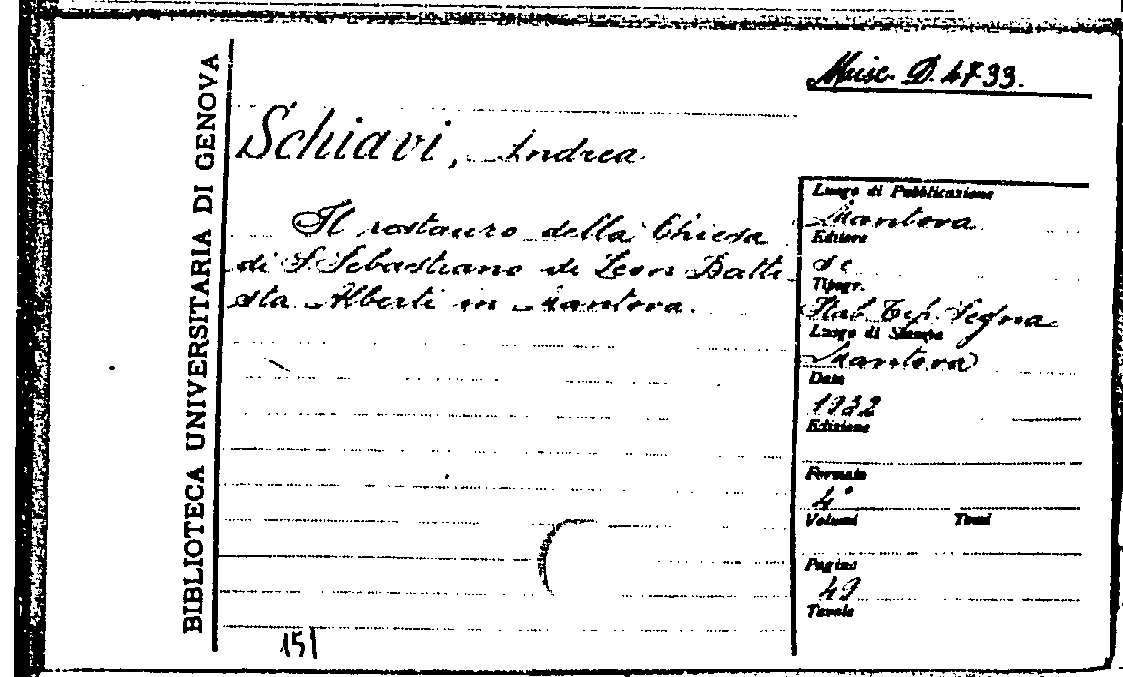 BIBLIOTECA UNIVERSITARIA DI GENOVA
Misc. D. 47 33.
Schiavi, Andrea
Il restauro della Chiesa
di S. Sebastiano di Leon Batti
sta Alberti in Mantova.
Luogo di Pubblicazione
Mantova
Editore
s e
Tipogr.
Stab. Tip. Segna
Luogo di Stampa
Mantova
Data
1932
Edizione
Formato
4°
Volumi Tomi
Pagine
49
Tavole
151